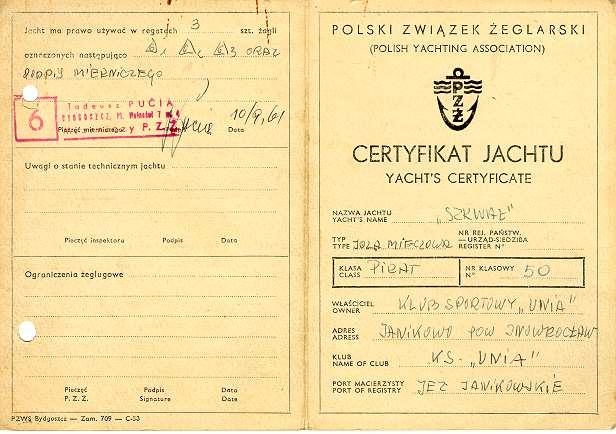 Jacht ma prawo używać w regatach 3 szt. żagli
oznaczonych następująco 1 2 3 ORAZ
PODPIS MIERNICZEGO
6
Tadeusz PUCIA
BYDGOSZCZ, M.
10/9, 61
Pieczęć mierniczego Data
y P. Z. Ż
Uwagi o stanie technicznym jachtu
Pieczęć inspektora Podpis Data
Ograniczenia żeglugowe
Pieczęć Podpis Data
P. Z. Ż. Signature Date
PZWS Bydgoszcz — Zam. 709 — C-53
POLSKI ZWIĄZEK ŻEGLARSKI
(POLISH YACHTING ASSOCIATION)
PZŻ
CERTYFIKAT JACHTU
YACHT'S CERTIFICATE
NAZWA JACHTU
YACHT'S NAME „SZKWAŁ"
TYP
TYPE JOLA MIECZOWA
NR REJ. PAŃSTW.
— URZĄD-SIEDZIBA
REGISTER N°
KLASA
CLASS PIRAT
NR KLASOWY
N° 50
WŁAŚCICIEL
OWNER KLUB SPORTOWY „UNIA"
ADRES
ADRESS JANIKOWO POW INOWROCŁAW
KLUB
NAME OF CLUB KS- „UNIA"
PORT MACIERZYSTY
PORT OF REGISTRY JEZ JANIKOWSKIE